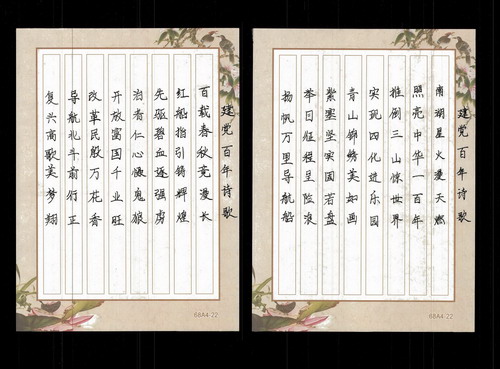 建党百年诗歌
百载春秋竞漫长
红船指引铸辉煌
先驱碧血逐强虏
治者仁心恸鬼狼
开放富国千业旺
改革民殷万花香
导航北斗前行正
复兴高歌美梦翔
68A4-22
建党百年诗歌
南湖星火漫天燃
照亮中华一百年
推倒三山惊世界
实现四化进乐园
青山锦绣美如画
紫塞坚实固若盘
举目征程呈险浪
扬帆万里导航船
68A4-22